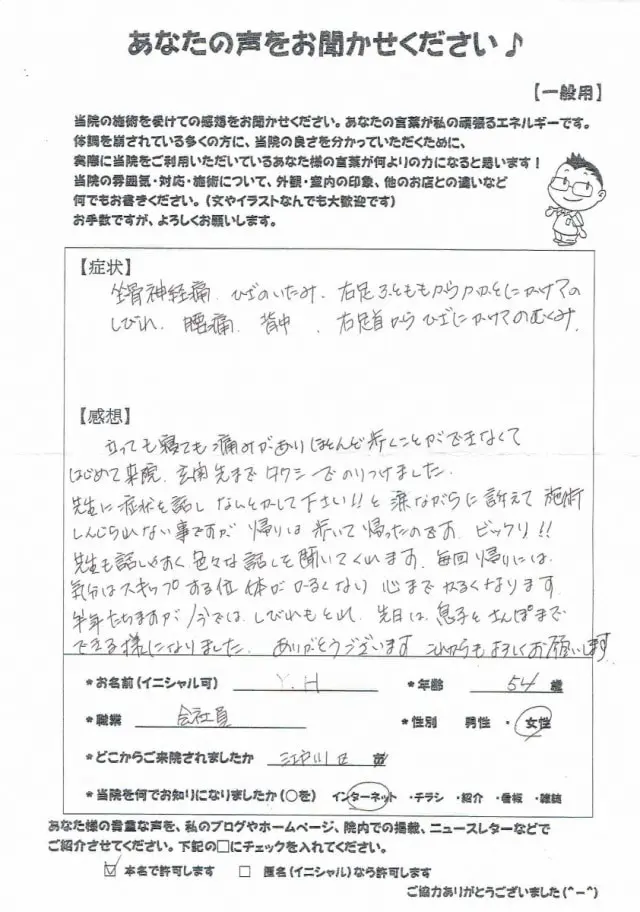 あなたの声をお聞かせください♪
【一般用】
当院の施術を受けての感想をお聞かせください。あなたの言葉が私の頑張るエネルギーです。
体調を崩されている多くの方に、当院の良さを分かっていただくために、
実際に当院をご利用いただいているあなた様の言葉が何よりの力になると思います！
当院の雰囲気・対応・施術について、外観・室内の印象、他のお店との違いなど
何でもお書きください。(文やイラストなんでも大歓迎です)
お手数ですが、よろしくお願いします。
【症状】
坐骨神経痛、ひざのいたみ、右足ふとももからかかとにかけての
しびれ、腰痛、背中、右足首からひざにかけてのむくみ、
【感想】
立っても寝ても痛みがありほとんど歩くことができなくて
はじめて来院、玄関先までタクシーでのりつけました。
先生に症状を話しなんとかして下さい!!と涙ながらに訴えて施術
しんじられない事ですが帰りは歩いて帰ったのです。ビックリ!!
先生も話しやすく色々な話しを聞いてくれます。毎回帰りには、
気分はスキップする位体がかるくなり心までかるくなります
半年たちますが今では、しびれもとれ、先日は、息子とさんぽまで
できる様になりました。ありがとうございますこれからもよろしくお願いします
*お名前(イニシャル可) Y.H *年齢 54 歳
*職業 会社員 *性別 男性・女性
*どこからご来院されましたか 江戸川区 市
*当院を何でお知りになりましたか(○を) インターネット ・チラシ ・紹介 ・看板 ・雑誌
あなた様の貴重な声を、私のブログやホームページ、院内での掲載、ニュースレターなどで
ご紹介させてください。下記の□にチェックを入れてください。
☑ 本名で許可します □ 匿名(イニシャル)なら許可します
ご協力ありがとうございました(^-^)